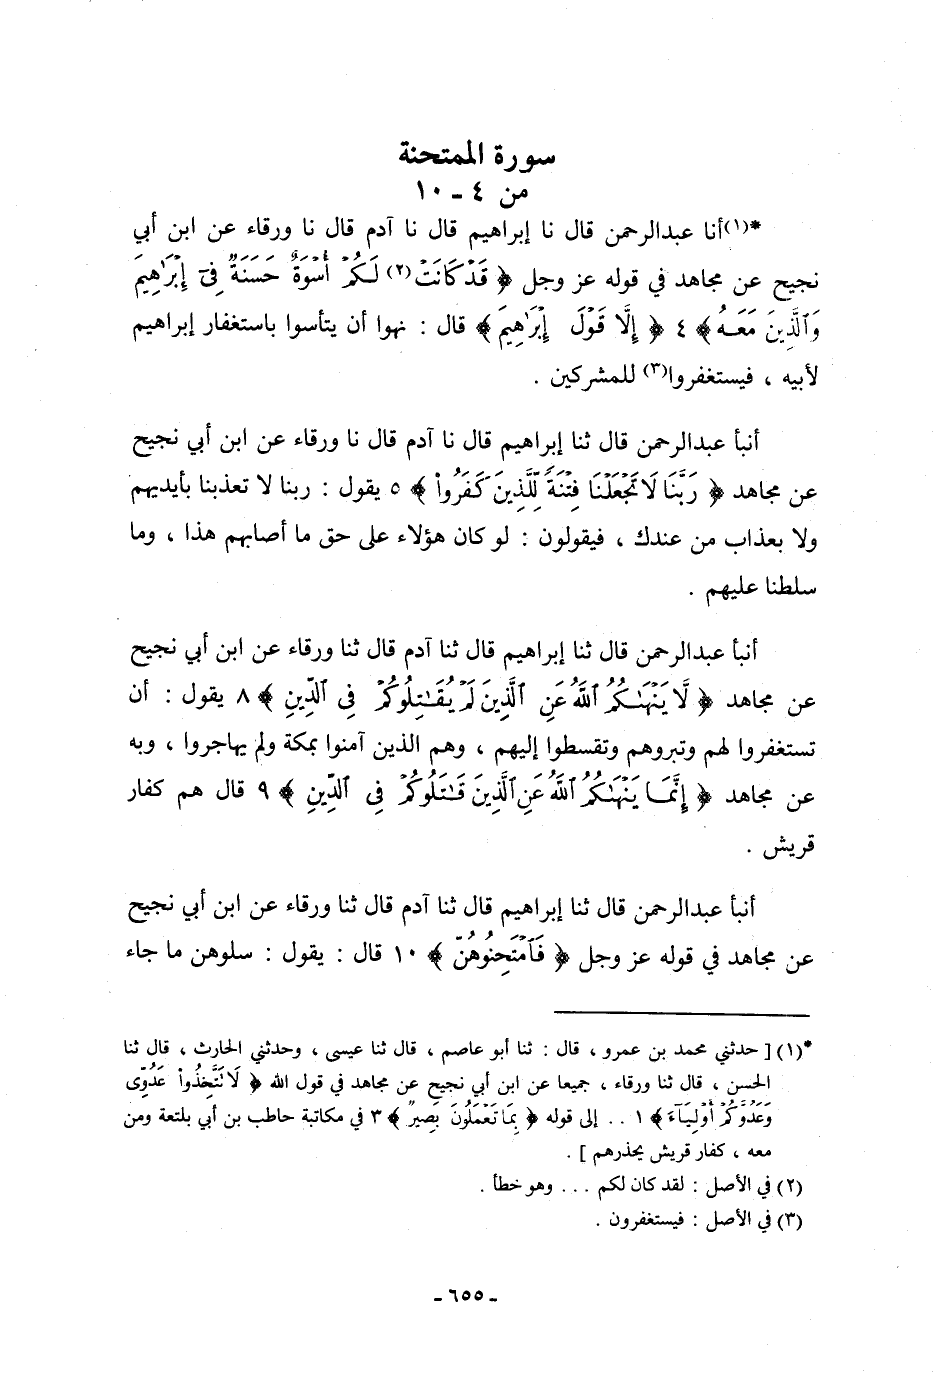 سورة الممتحنة
من ٤ - ١٠
*(١) أنا عبدالرحمن قال نا إبراهيم قال نا آدم قال نا ورقاء عن ابن أبي
نجيح عن مجاهد في قوله عز وجل ﴿ قَدْ كَانَتْ (٢) لَكُمْ أُسْوَةٌ حَسَنَةٌ فِىٓ إِبْرَٰهِيمَ
وَٱلَّذِينَ مَعَهُۥ ﴾ ٤ ﴿ إِلَّا قَوْلَ إِبْرَٰهِيمَ ﴾ قال : نهوا أن يتأسوا باستغفار إبراهيم
لأبيه ، فيستغفروا (٣) للمشركين .
أنبأ عبدالرحمن قال ثنا إبراهيم قال نا آدم قال نا ورقاء عن ابن أبي نجيح
عن مجاهد ﴿ رَبَّنَا لَا تَجْعَلْنَا فِتْنَةً لِّلَّذِينَ كَفَرُوا۟ ﴾ ٥ يقول : ربنا لا تعذبنا بأيديهم
ولا بعذاب من عندك ، فيقولون : لو كان هؤلاء على حق ما أصابهم هذا ، وما
سلطنا عليهم .
أنبأ عبدالرحمن قال ثنا إبراهيم قال ثنا آدم قال ثنا ورقاء عن ابن أبي نجيح
عن مجاهد ﴿ لَّا يَنْهَىٰكُمُ ٱللَّهُ عَنِ ٱلَّذِينَ لَمْ يُقَٰتِلُوكُمْ فِى ٱلدِّينِ ﴾ ٨ يقول : أن
تستغفروا لهم وتبروهم وتقسطوا إليهم ، وهم الذين آمنوا بمكة ولم يهاجروا ، وبه
عن مجاهد ﴿ إِنَّمَا يَنْهَىٰكُمُ ٱللَّهُ عَنِ ٱلَّذِينَ قَٰتَلُوكُمْ فِى ٱلدِّينِ ﴾ ٩ قال هم كفار
قريش .
أنبأ عبدالرحمن قال ثنا إبراهيم قال ثنا آدم قال ثنا ورقاء عن ابن أبي نجيح
عن مجاهد في قوله عز وجل ﴿ فَٱمْتَحِنُوهُنَّ ﴾ ١٠ قال : يقول : سلوهن ما جاء
*(١) [ حدثني محمد بن عمرو ، قال : ثنا أبو عاصم ، قال ثنا عيسى ، وحدثني الحارث ، قال ثنا
الحسن ، قال ثنا ورقاء ، جميعا عن ابن أبي نجيح عن مجاهد في قول الله ﴿ لَا تَتَّخِذُوا۟ عَدُوِّى
وَعَدُوَّكُمْ أَوْلِيَآءَ ﴾ ١ .. إلى قوله ﴿ بِمَا تَعْمَلُونَ بَصِيرٌ ﴾ ٣ في مكاتبة حاطب بن أبي بلتعة ومن
معه ، كفار قريش يحذرهم ] .
(٢) في الأصل : لقد كان لكم ... وهو خطأ .
(٣) في الأصل : فيستغفرون .
- ٦٥٥ -